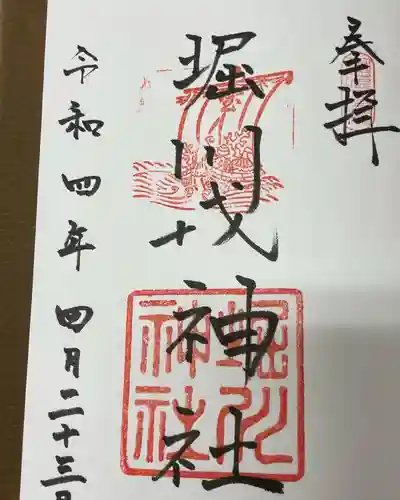 奉拝
堀川戎神社
令和四年四月二十三日
堀川
神社